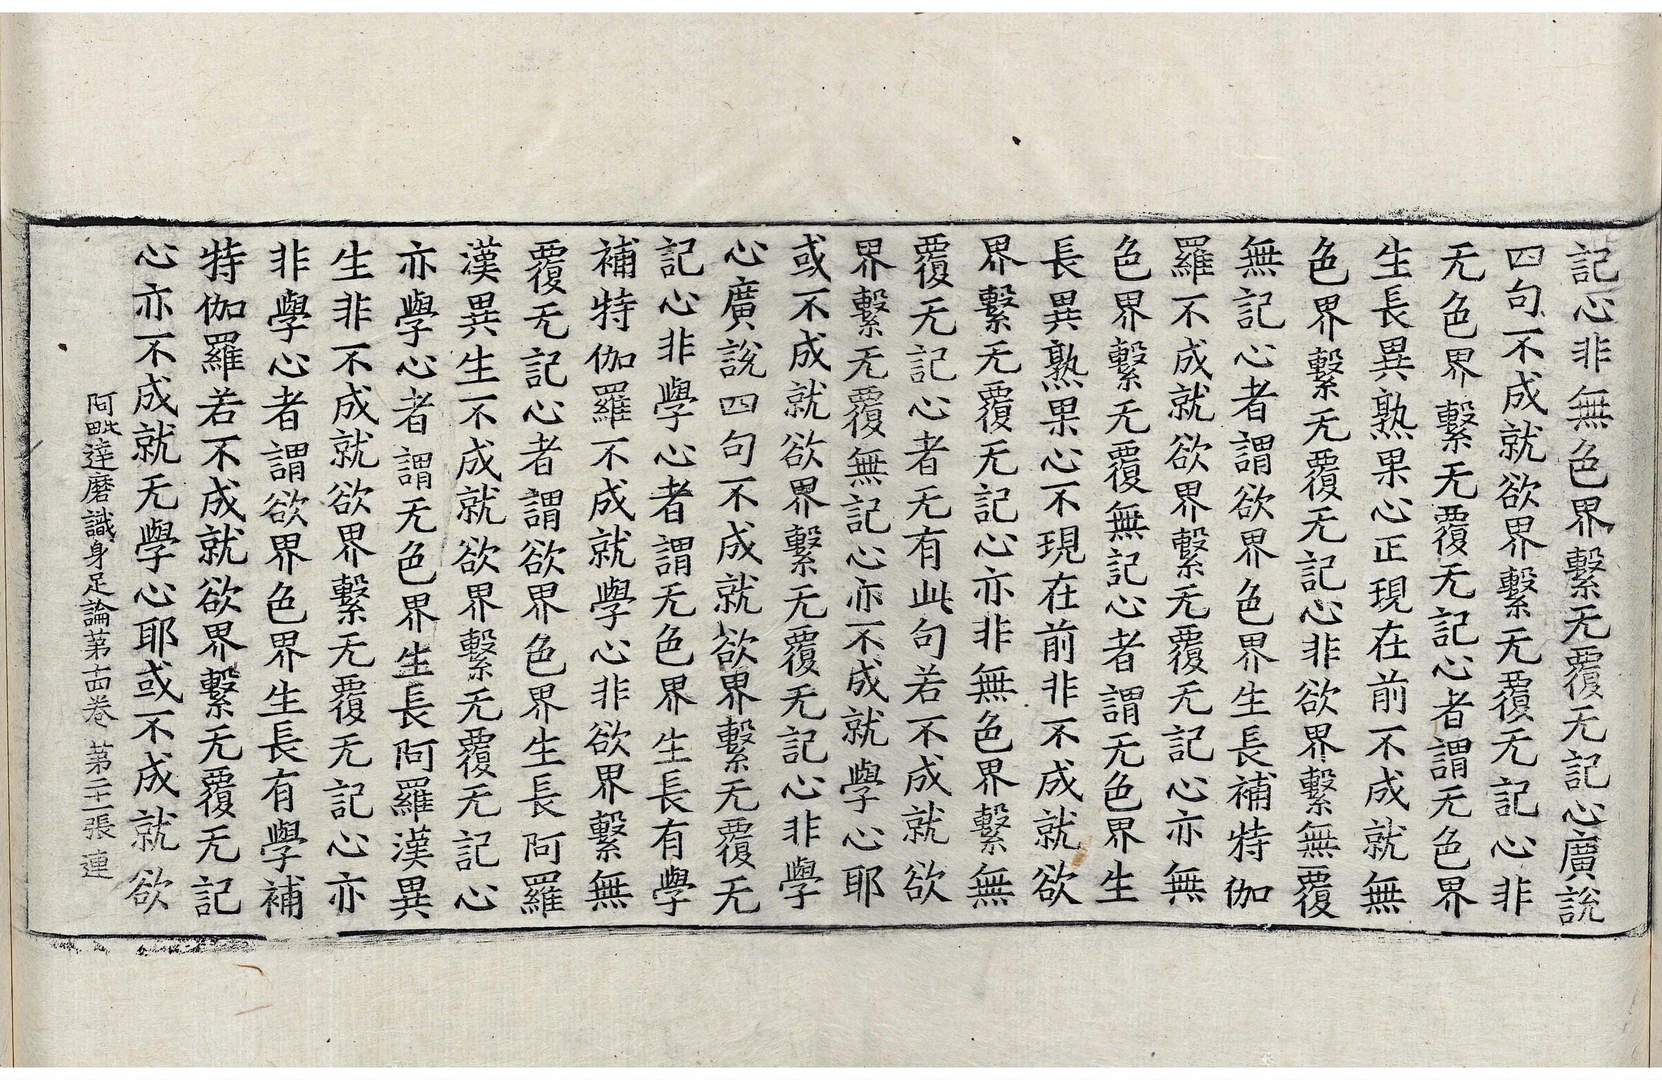 記心非無色界繫无覆无記心廣說
四句不成就欲界繫无覆无記心非
无色界繫无覆无記心者謂无色界
生長異熟果心正現在前不成就無
色界繫无覆无記心非欲界繫無覆
無記心者謂欲界色界生長補特伽
羅不成就欲界繫无覆无記心亦無
色界繫无覆無記心者謂无色界生
長異熟果心不現在前非不成就欲
界繫无覆无記心亦非無色界繫無
覆无記心者无有此句若不成就欲
界繫无覆無記心亦不成就學心耶
或不成就欲界繫无覆无記心非學
心廣說四句不成就欲界繫无覆无
記心非學心者謂无色界生長有學
補特伽羅不成就學心非欲界繫無
覆无記心者謂欲界色界生長阿羅
漢異生不成就欲界繫无覆无記心
亦學心者謂无色界生長阿羅漢異
生非不成就欲界繫无覆无記心亦
非學心者謂欲界色界生長有學補
特伽羅若不成就欲界繫无覆无記
心亦不成就无學心耶或不成就欲
阿毗達磨識身足論第十四卷 第二十一張 連